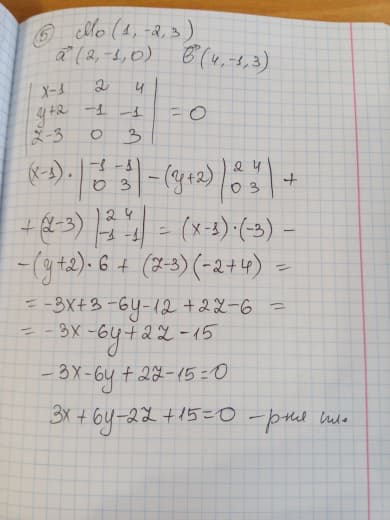 ⑤ M₀(1, -2, 3)
a⃗(2, -1, 0) b⃗(4, -1, 3)
| x-1 2 4 |
| y+2 -1 -1 | = 0
| z-3 0 3 |
(x-1) · | -1 -1 | - (y+2) | 2 4 | +
| 0 3 | | 0 3 |
+ (z-3) | 2 4 | = (x-1)·(-3) -
| -1 -1 |
-(y+2)·6 + (z-3)(-2+4) =
= -3x+3-6y-12+2z-6 =
= -3x-6y+2z-15
-3x-6y+2z-15=0
3x+6y-2z+15=0 – р-ня пл.